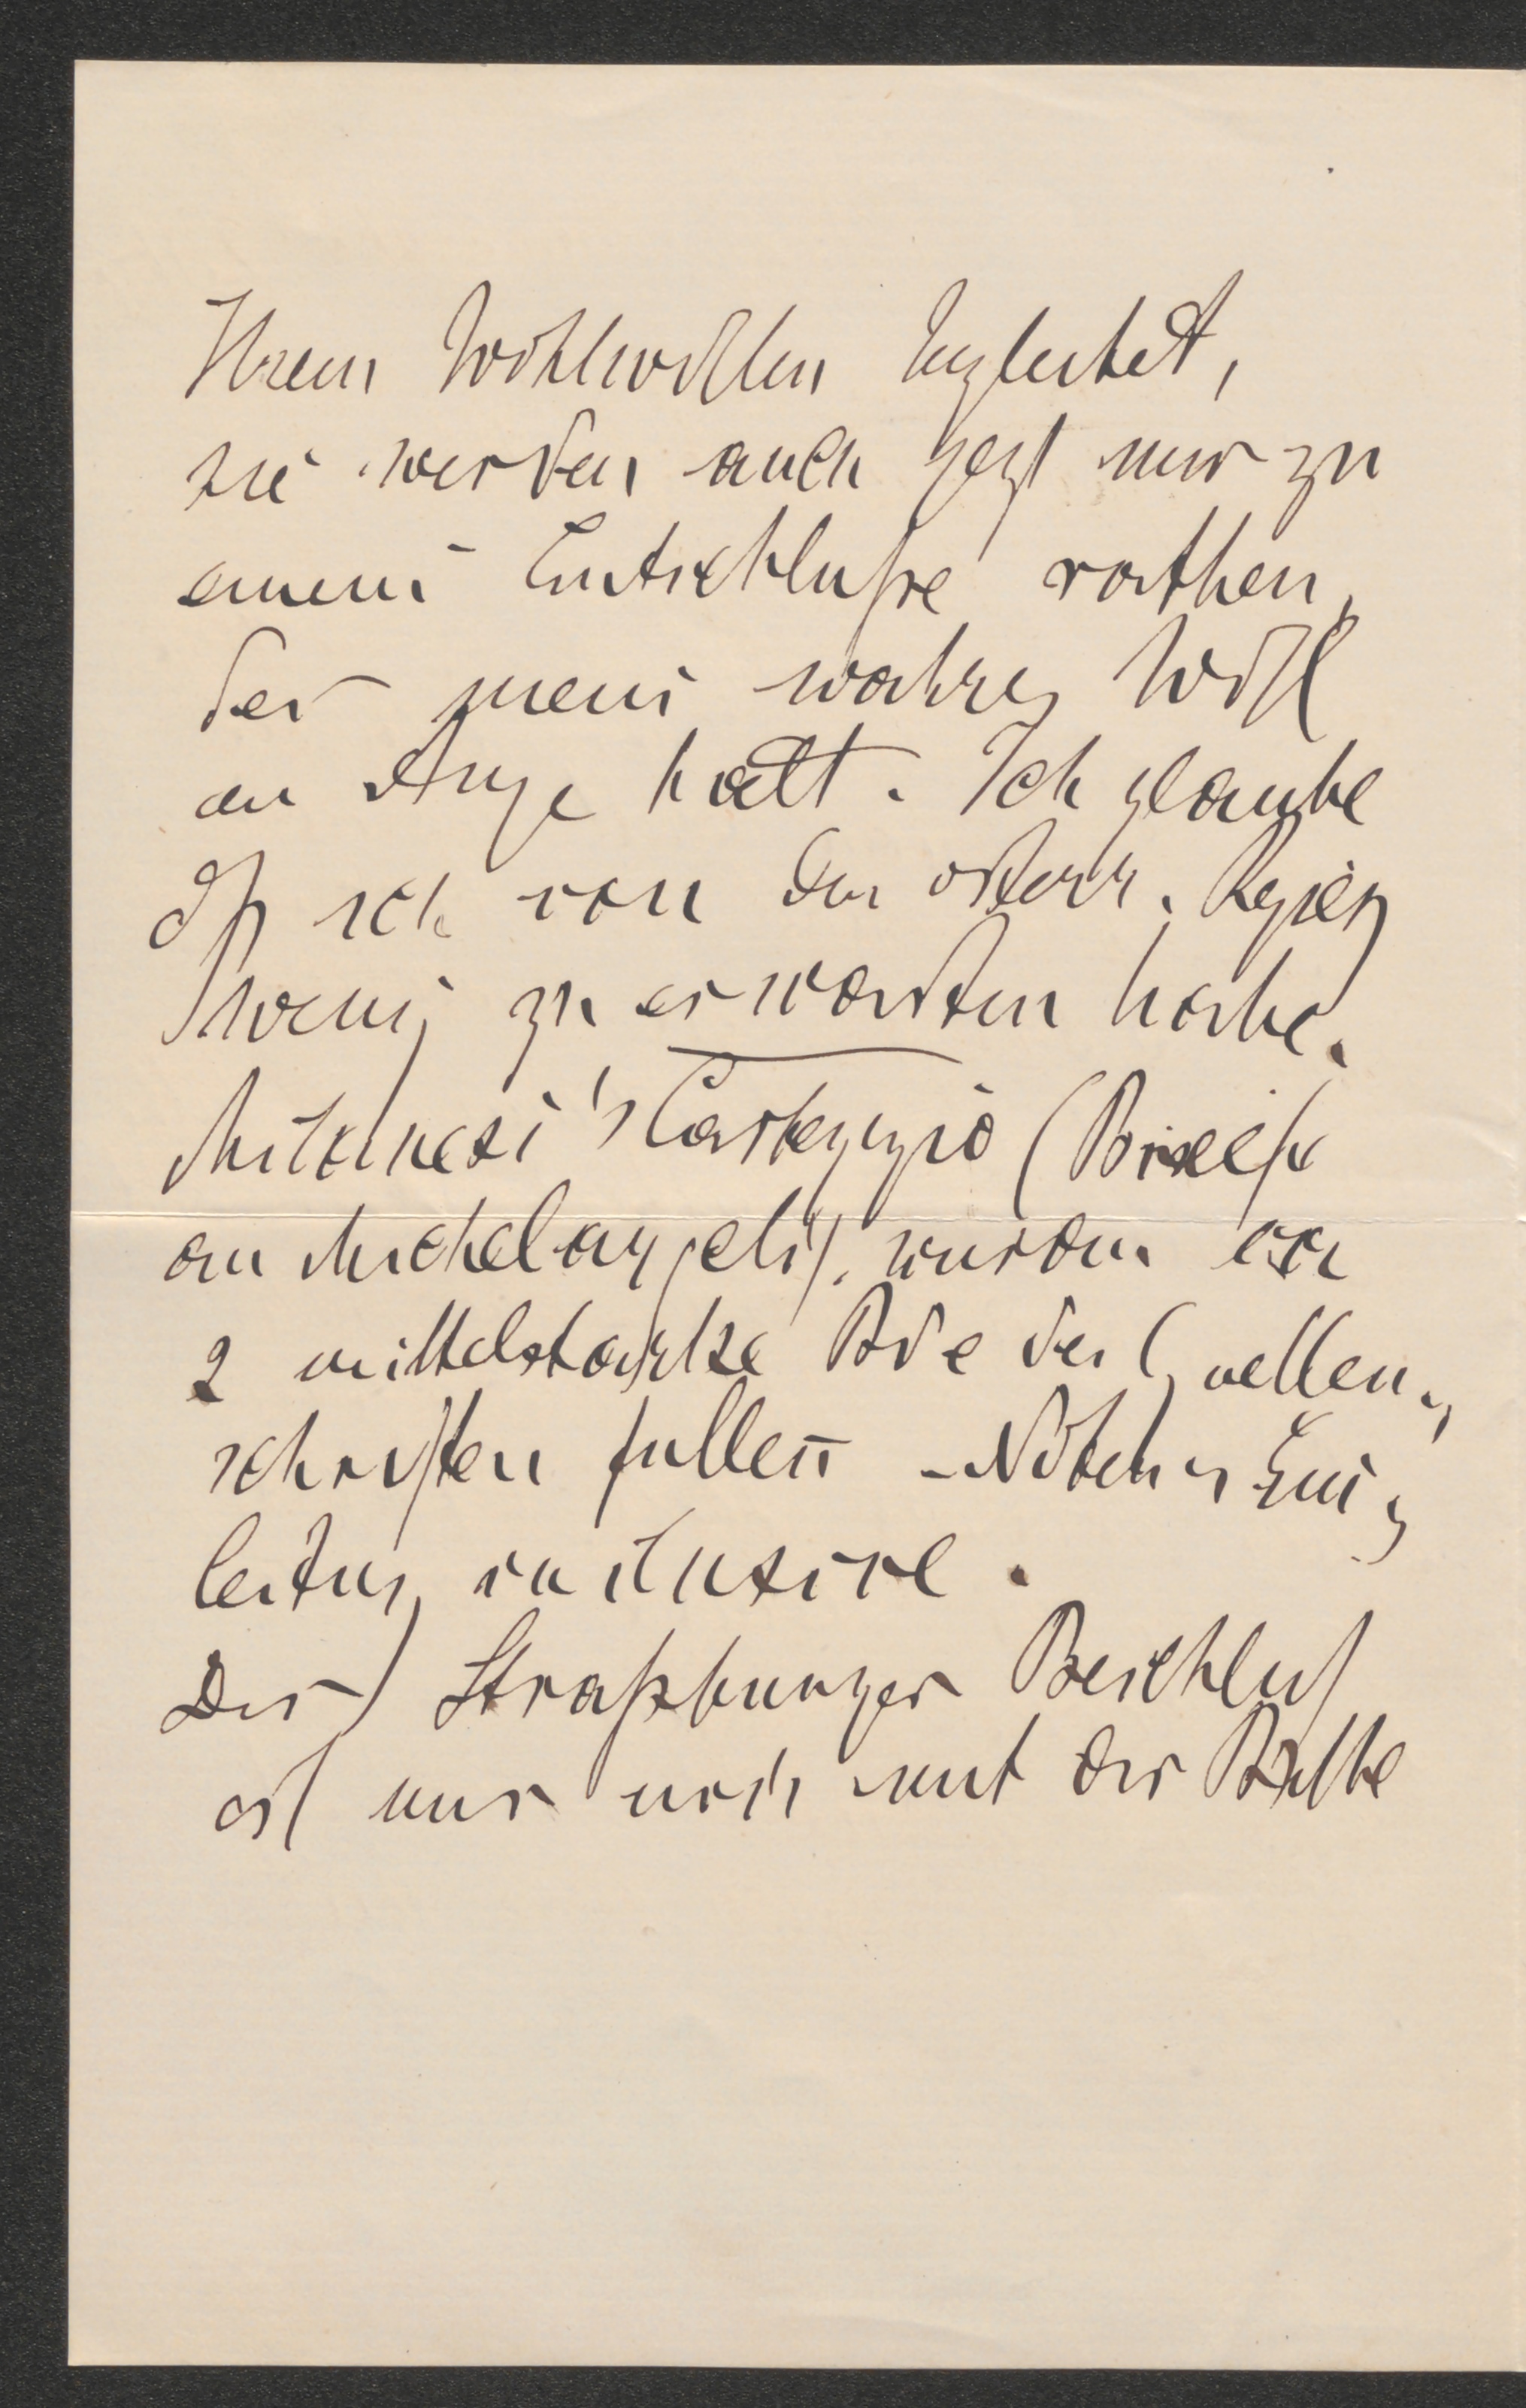 Ihrem Wohlwollen begleitet,
sie werden auch jezt mir zu
einem Entschluße rathen,
der mein wahres Wohl
im Auge hält. Ich glaube
dß ich von der österr. Regierg
wenig zu erwarten habe.
Milanesi's Carteggio (Briefe
an Michelangelo), würden ca
2 mittelstarke Bde der Quellen-
schriften füllen – Noten u Ein-
leitung inclusive.
Der Straßburger Beschluß
ist mir noch mit der Bitte